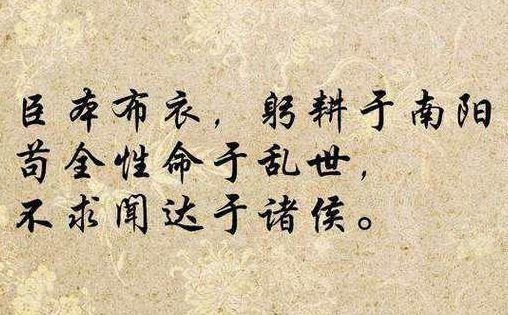 臣本布衣，躬耕于南阳
苟全性命于乱世，
不求闻达于诸侯。